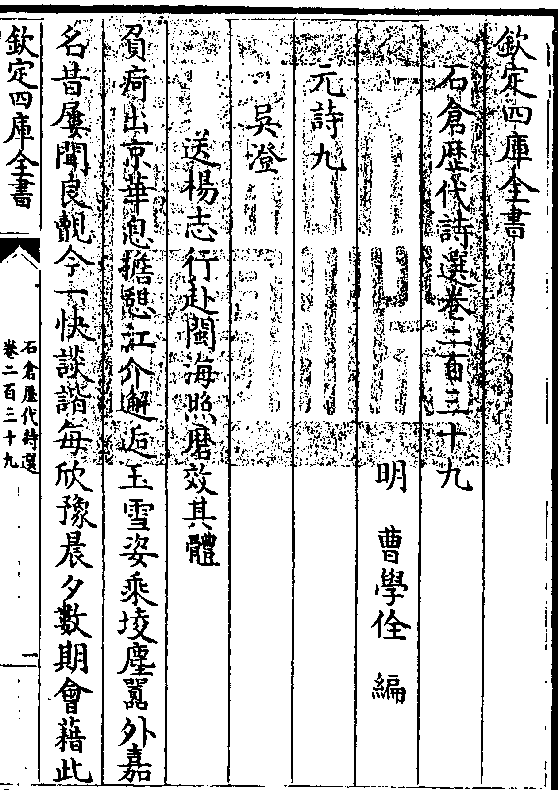 欽定四庫全書
石倉歷代詩選卷二百三十九
明　曹學佺　編
元詩九
吳澄
送楊志行赴閩海照磨效其體
負疴出京華息擔憩江介邂逅玉雪姿乘埈塵囂外嘉
名昔屢聞良覿今一快談諧每欣豫晨夕數期會藉此
欽定四庫全書
石倉歷代詩選
卷二百三十九
一